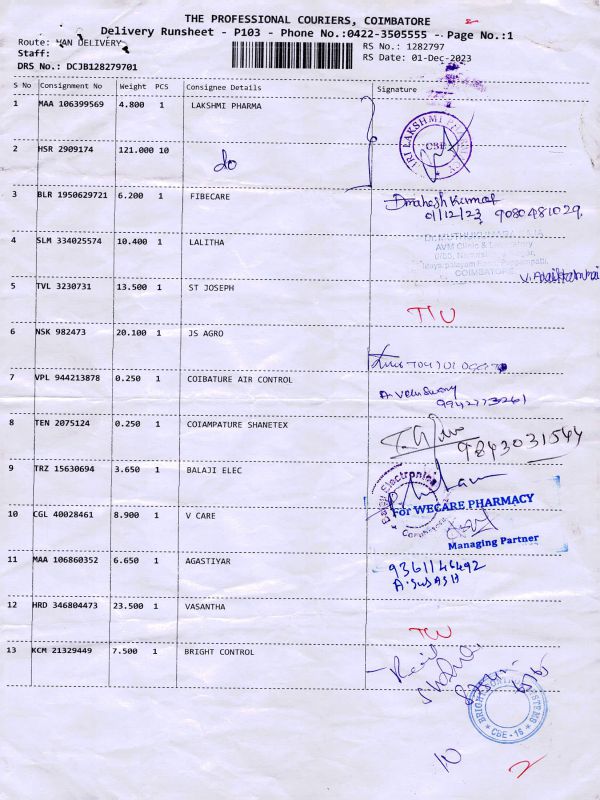 THE PROFESSIONAL COURIERS, COIMBATORE 2
Delivery Runsheet - P103 - Phone No.:0422-3505555 - Page No.:1
Route: VAN DELIVERY
RS No.: 1282797
Staff:
RS Date: 01-Dec-2023
DRS No.: DCJB128279701
S No Consignment No Weight PCS Consignee Details Signature
1 MAA 106399569 4.800 1 LAKSHMI PHARMA
SRI LAKSHMI PHARMACY CBE
2 HSR 2909174 121.000 10 do
3 BLR 1950629721 6.200 1 FIBECARE
01/12/23 9080481029.
4 SLM 334025574 10.400 1 LALITHA
AVM Clinic & Laboratory
COIMBATORE
5 TVL 3230731 13.500 1 ST JOSEPH
6 NSK 982473 20.100 1 JS AGRO
7 VPL 944213878 0.250 1 COIBATURE AIR CONTROL
8 TEN 2075124 0.250 1 COIAMPATURE SHANETEX
9843031544
9 TRZ 15630694 3.650 1 BALAJI ELEC
Balaji Electronics
10 CGL 40028461 8.900 1 V CARE
For WECARE PHARMACY
Managing Partner
11 MAA 106860352 6.650 1 AGASTIYAR
9361146492
12 HRD 346804473 23.500 1 VASANTHA
13 KCM 21329449 7.500 1 BRIGHT CONTROL
CBE-15
10
2